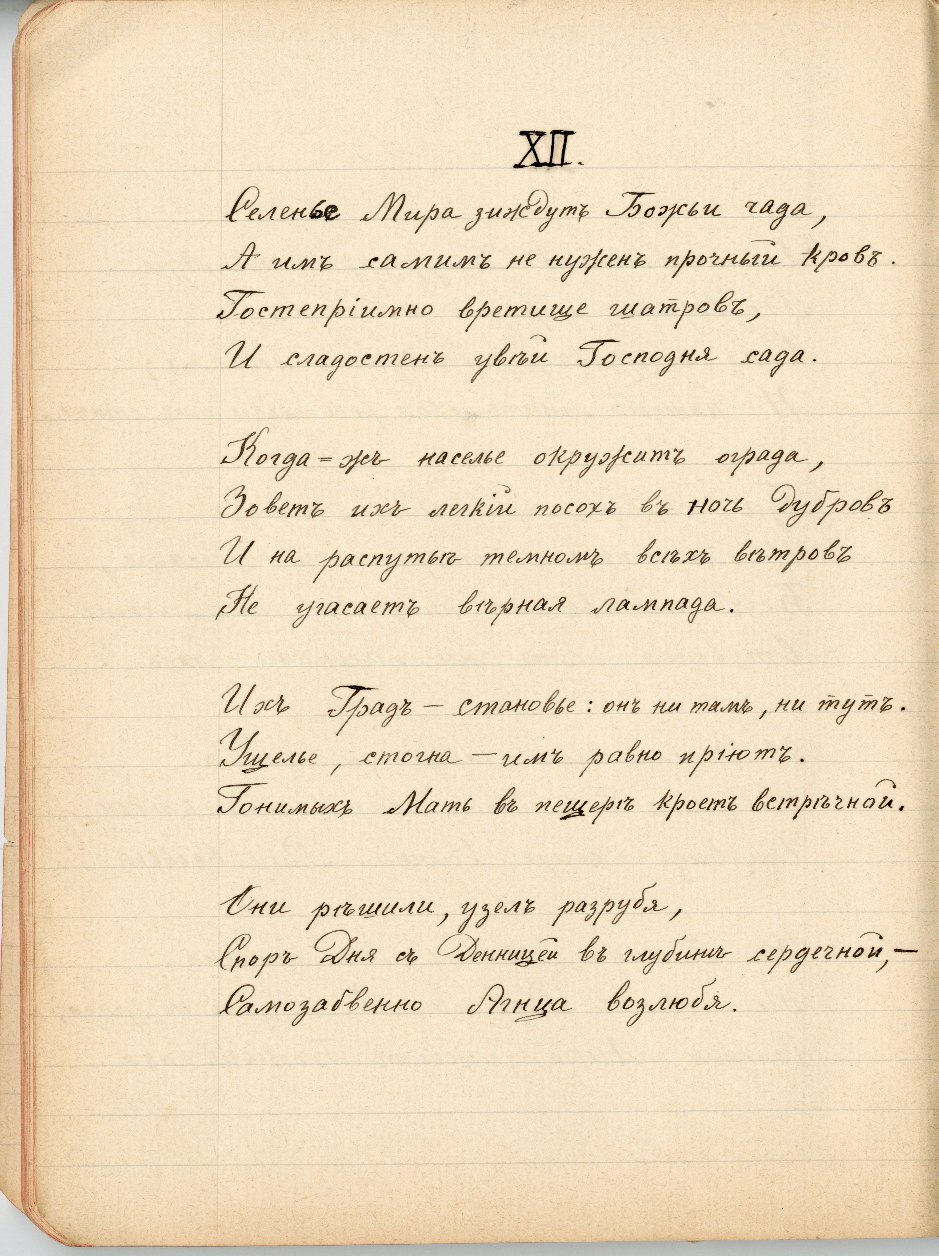 XII.
Селенье Мира зиждутъ Божьи чада,
А имъ самимъ не нуженъ прочный кровъ.
Гостепріимно вретище шатровъ,
И сладостенъ увѣй Господня сада.
Когда-жъ населье окружитъ ограда,
Зоветъ ихъ легкій посохъ въ ночь дубровъ
И на распутьѣ темномъ всѣхъ вѣтровъ
Не угасаетъ вѣрная лампада.
Ихъ Градъ — становье: онъ ни тамъ, ни тутъ.
Ущелье, стогна — имъ равно пріютъ.
Гонимыхъ Мать въ пещерѣ кроетъ встрѣчной.
Они рѣшили, узелъ разрубя,
Споръ Дня съ Денницей въ глубинѣ сердечной, —
Самозабвенно Агнца возлюбя.